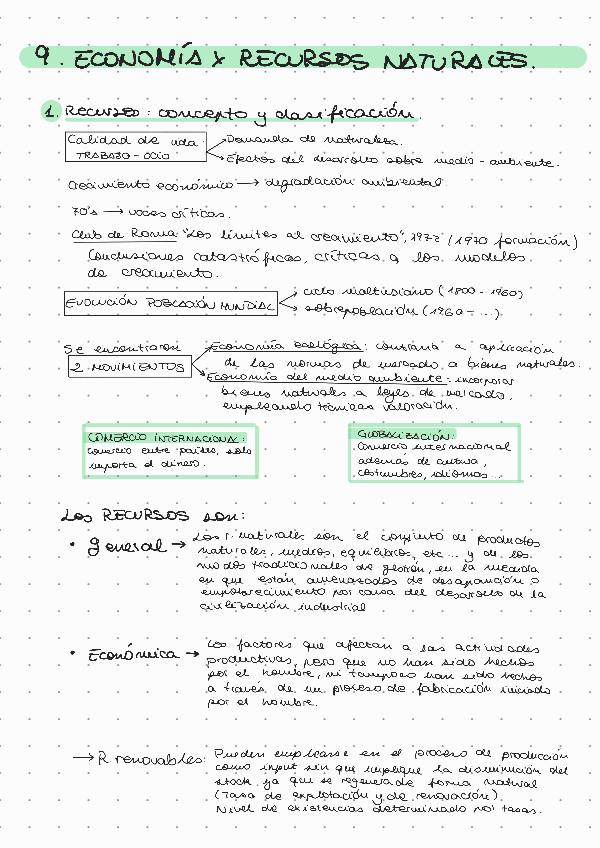 9. ECONOMÍA Y RECURSOS NATURALES.
1. Recurso: concepto y clasificación.
Calidad de vida
TRABAJO - OCIO
Demanda de naturaleza.
Efectos del desarrollo sobre medio - ambiente.
Crecimiento económico → degradación ambiental
70's → voces críticas.
Club de Roma "Los límites al crecimiento", 1972 (1970 formación)
Conclusiones catastróficas, críticas a los modelos
de crecimiento.
EVOLUCIÓN POBLACIÓN MUNDIAL
ciclo maltusiano (1800 - 1960)
sobrepoblación (1960 - ...)
Se encontraron
2 MOVIMIENTOS
Economía ecológica: contraria a aplicación
de las normas de mercado a bienes naturales.
Economía del medio ambiente: incorporar
bienes naturales a leyes de mercado,
empleando técnicas valoración.
COMERCIO INTERNACIONAL:
comercio entre países, solo
importa el dinero.
GLOBALIZACIÓN:
Comercio internacional
además de cultura,
costumbres, idiomas...
Los RECURSOS son:
• General → Los r. naturales son el conjunto de productos
naturales, medios, equilibrios, etc... y de los
modos tradicionales de gestión, en la medida
en que están amenazados de desaparición o
empobrecimiento por causa del desarrollo de la
civilización industrial
• Económica → Los factores que afectan a las actividades
productivas, pero que no han sido hechos
por el hombre, ni tampoco han sido hechos
a través de un proceso de fabricación iniciado
por el hombre.
→ R renovables: Pueden emplearse en el proceso de producción
como input sin que implique la disminución del
stock ya que se regenera de forma natural
(Tasa de explotación y de renovación).
Nivel de existencias determinado por tasas.